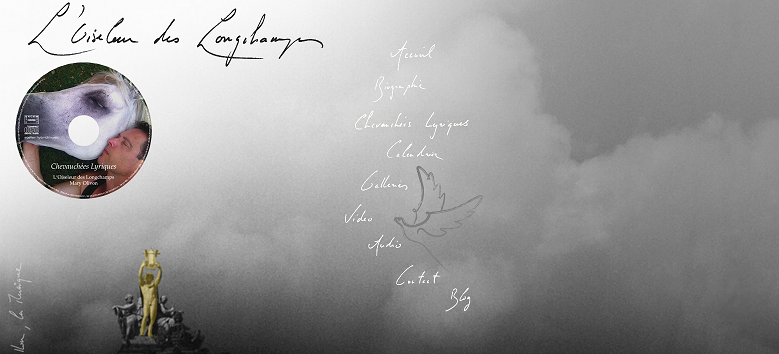 L'Oiseleur des Longchamps
Chevauchées Lyriques
L'Oiseleur des Longchamps
Mary Olivon
Accueil
Biographie
Chevauchées Lyriques
Calendrier
Galleries
Video
Audio
Contact
Blog